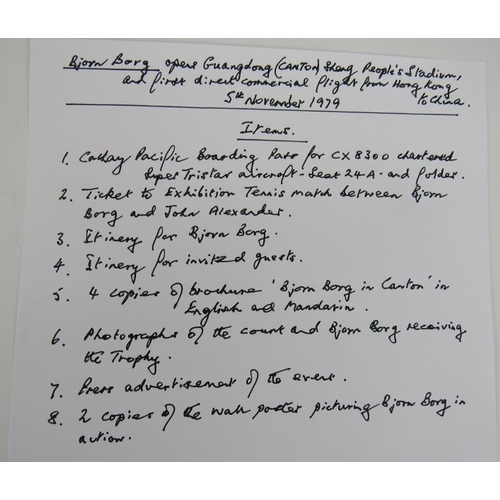 Bjorn Borg opens Guangdong (CANTON) Sheng People's Stadium,
and first direct commercial flight from Hong Kong
to China.
5th November 1979
Items.
1. Cathay Pacific Boarding Pass for CX8300 chartered
Super Tristar aircraft - Seat 24A - and folder.
2. Ticket to Exhibition Tennis match between Bjorn
Borg and John Alexander.
3. Itinery for Bjorn Borg.
4. Itinery for invited guests.
5. 4 copies of brochure 'Bjorn Borg in Canton' in
English and Mandarin.
6. Photographs of the court and Bjorn Borg receiving
the Trophy.
7. Press advertisement of the event.
8. 2 copies of the wall poster picturing Bjorn Borg in
action.